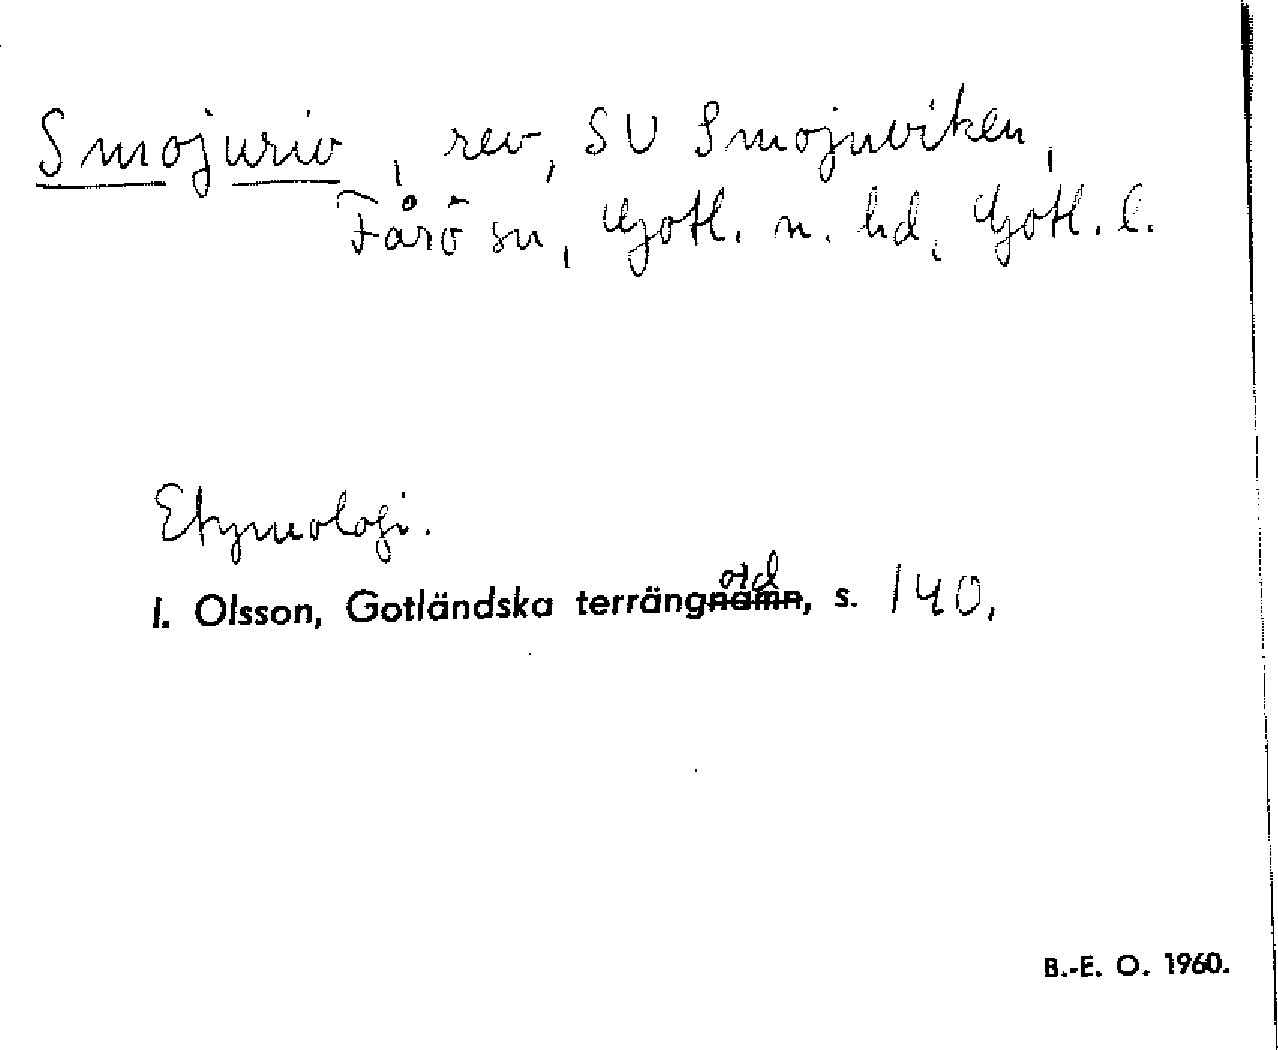 Smojuriv, rev, SV Smojuviken,
Fårö sn, Gotl. n. hd, Gotl. l.
Etymologi.
ord
I. Olsson, Gotländska terrängnamn, s. 140.
B.-E. O. 1960.